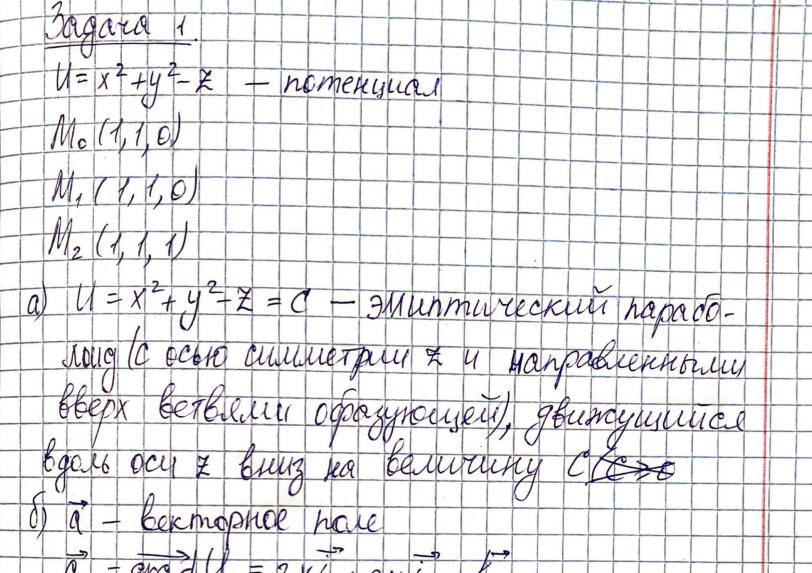 Задача 1.
U = x² + y² - z — потенциал
M₀ (1, 1, 0)
M₁ (1, 1, 0)
M₂ (1, 1, 1)
а) U = x² + y² - z = C — эллиптический парабо-
лоид (с осью симметрии z и направленными
вверх ветвями образующей), движущийся
вдоль оси z вниз на величину C
б) a⃗ — векторное поле
a⃗ = grad U = 2x i⃗